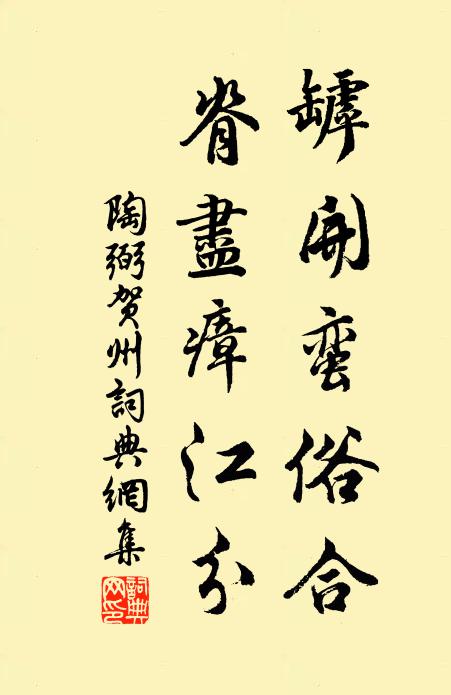 罅開蛮俗合
脊盡瘴江分
陶弼賀州詞典網集
詞典网印